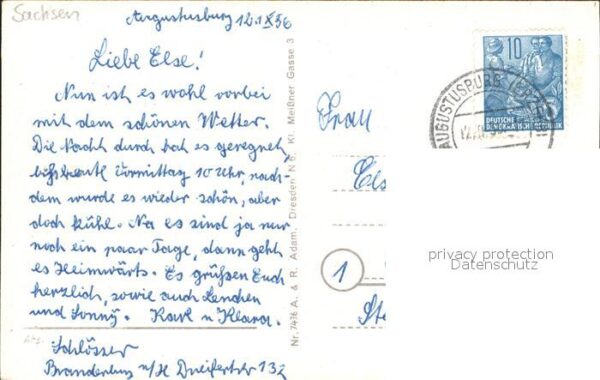 Sachsen
Augustusburg 12.IX 56
Liebe Else!
Nun ist es wohl vorbei
mit dem schönen Wetter.
Die Nacht durch hat es geregnet,
bis heute Vormittag 10 Uhr, nach-
dem wurde es wieder schön, aber
doch kühl. Na es sind ja nur
noch ein paar Tage, dann geht
es Heimwärts. Es grüßen Euch
herzlich, sowie auch Lenchen
und Sonny. Karl u Klara.
Abs.
Schlösser
Brandenburg n/H
132
Nr. 7416 A. & R. Adam, Dresden N 6, Kl. Meißner Gasse 3
Frau
1
10
DEUTSCHE
DEMOKRATISCHE REPUBLIK
AUGUSTUSBURG
privacy protection
Datenschutz